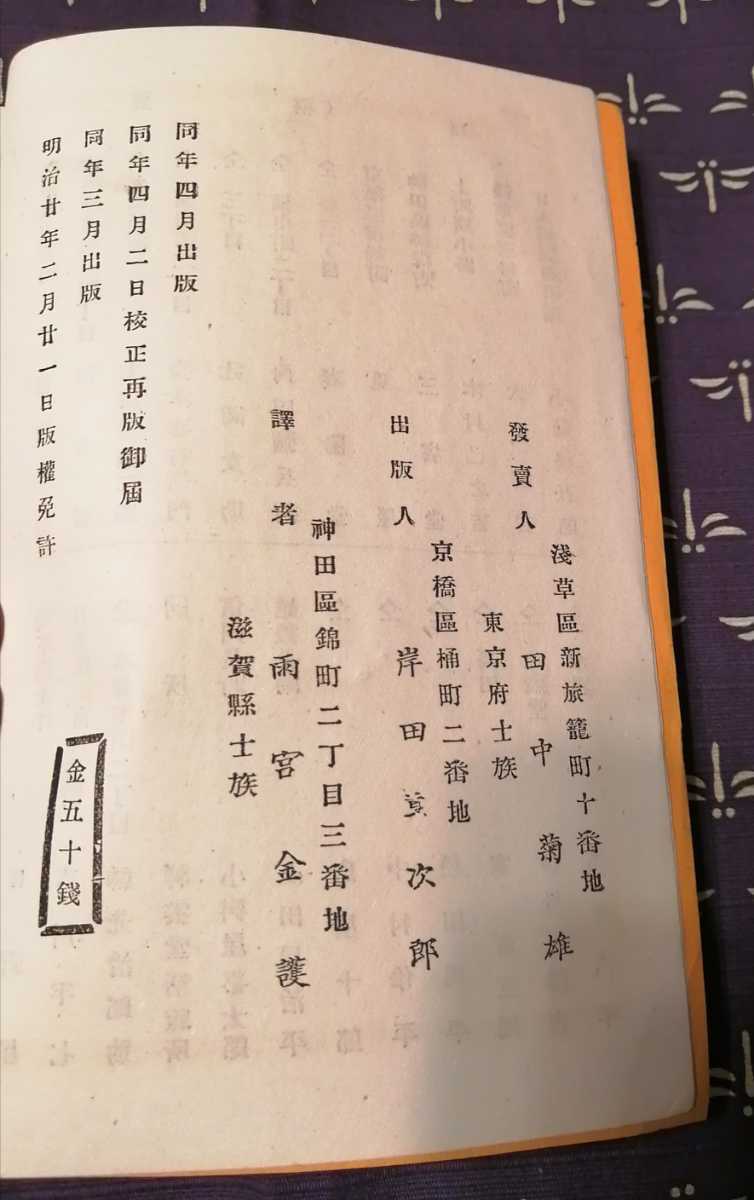 明治廿年二月廿一日版權免許
同年三月出版
同年四月二日校正再版御屆
同年四月出版
滋賀縣士族
譯者 雨宮金護
神田區錦町二丁目三番地
出版人 岸田次郎
京橋區桶町二番地
東京府士族
發賣人 田中菊雄
淺草區新旅籠町十番地
金五十錢